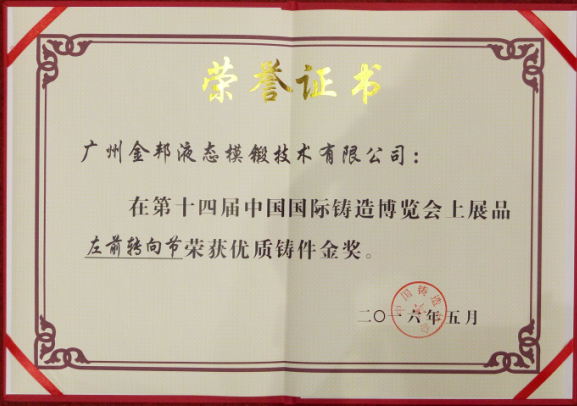 荣誉证书
广州金邦液态模锻技术有限公司：
在第十四届中国国际铸造博览会上展品
左前转向节荣获优质铸件金奖。
中国铸造协会
二〇一六年五月